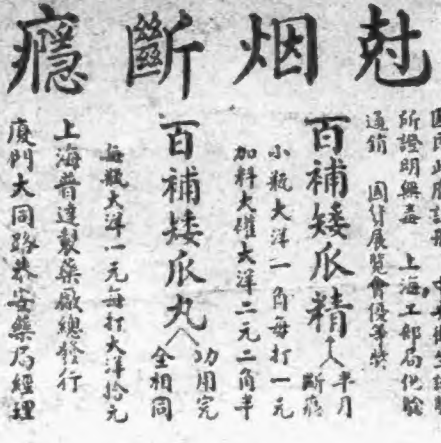 尅烟斷癮
所證明無毒　上海工部局化驗
通銷　國貨展覽會優等獎
百補矮瓜精
半月
斷癮
小瓶大洋一角每打一元
加料大礶大洋二元二角半
百補矮瓜丸
功用完
全相同
每瓶大洋一元每打大洋拾元
上海普達製藥廠總發行
廈門大同路泰安藥局經理